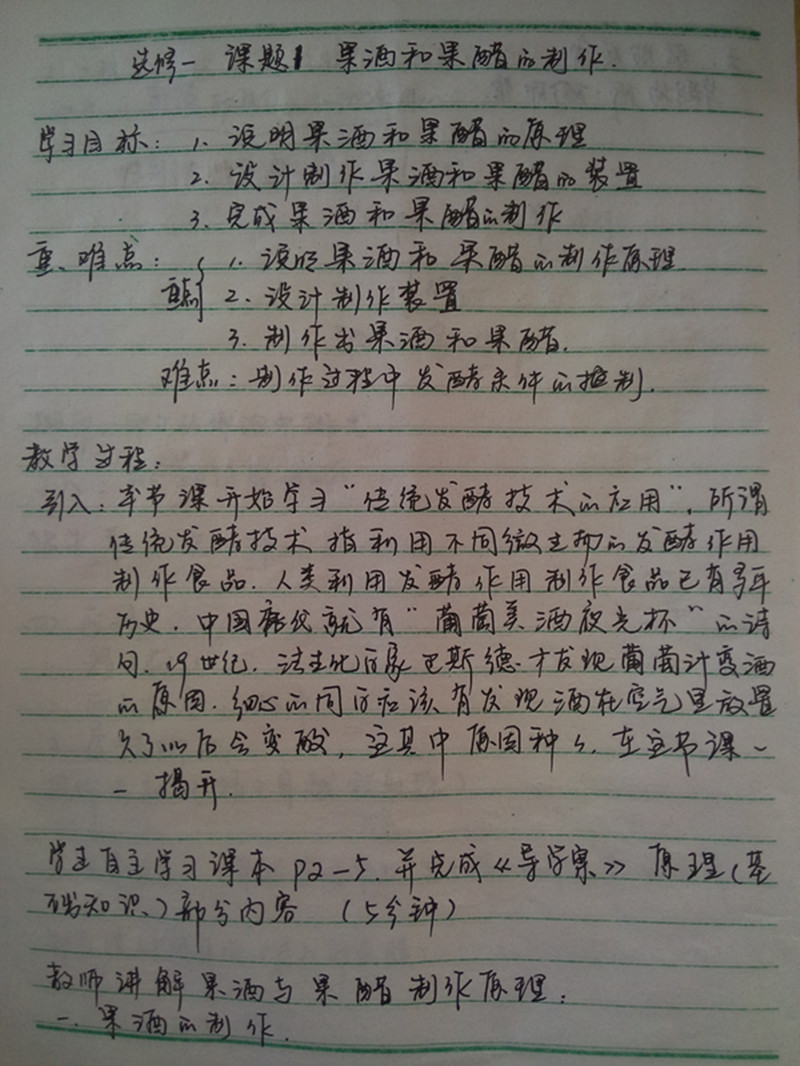 选修一 课题1 果酒和果醋的制作.
学习目标: 1. 说明果酒和果醋的原理
2. 设计制作果酒和果醋的装置
3. 完成果酒和果醋的制作
重、难点: 1. 说明果酒和果醋的制作原理
重点 2. 设计制作装置
3. 制作出果酒和果醋.
难点: 制作过程中发酵条件的控制.
教学过程:
引入: 本节课开始学习“传统发酵技术的应用”. 所谓
传统发酵技术 指利用不同微生物的发酵作用
制作食品. 人类利用发酵作用制作食品已有多年
历史. 中国唐代就有“葡萄美酒夜光杯”的诗
句. 19世纪. 法生化学家巴斯德才发现葡萄汁变酒
的原因. 细心的同学应该有发现酒在空气里放置
久了以后会变酸, 这其中原因种々. 在这节课一
一揭开.
学生自主学习课本P2-5. 并完成《导学案》原理(基
础知识)部分内容 (5分钟)
教师讲解果酒与果醋制作原理:
一. 果酒的制作.